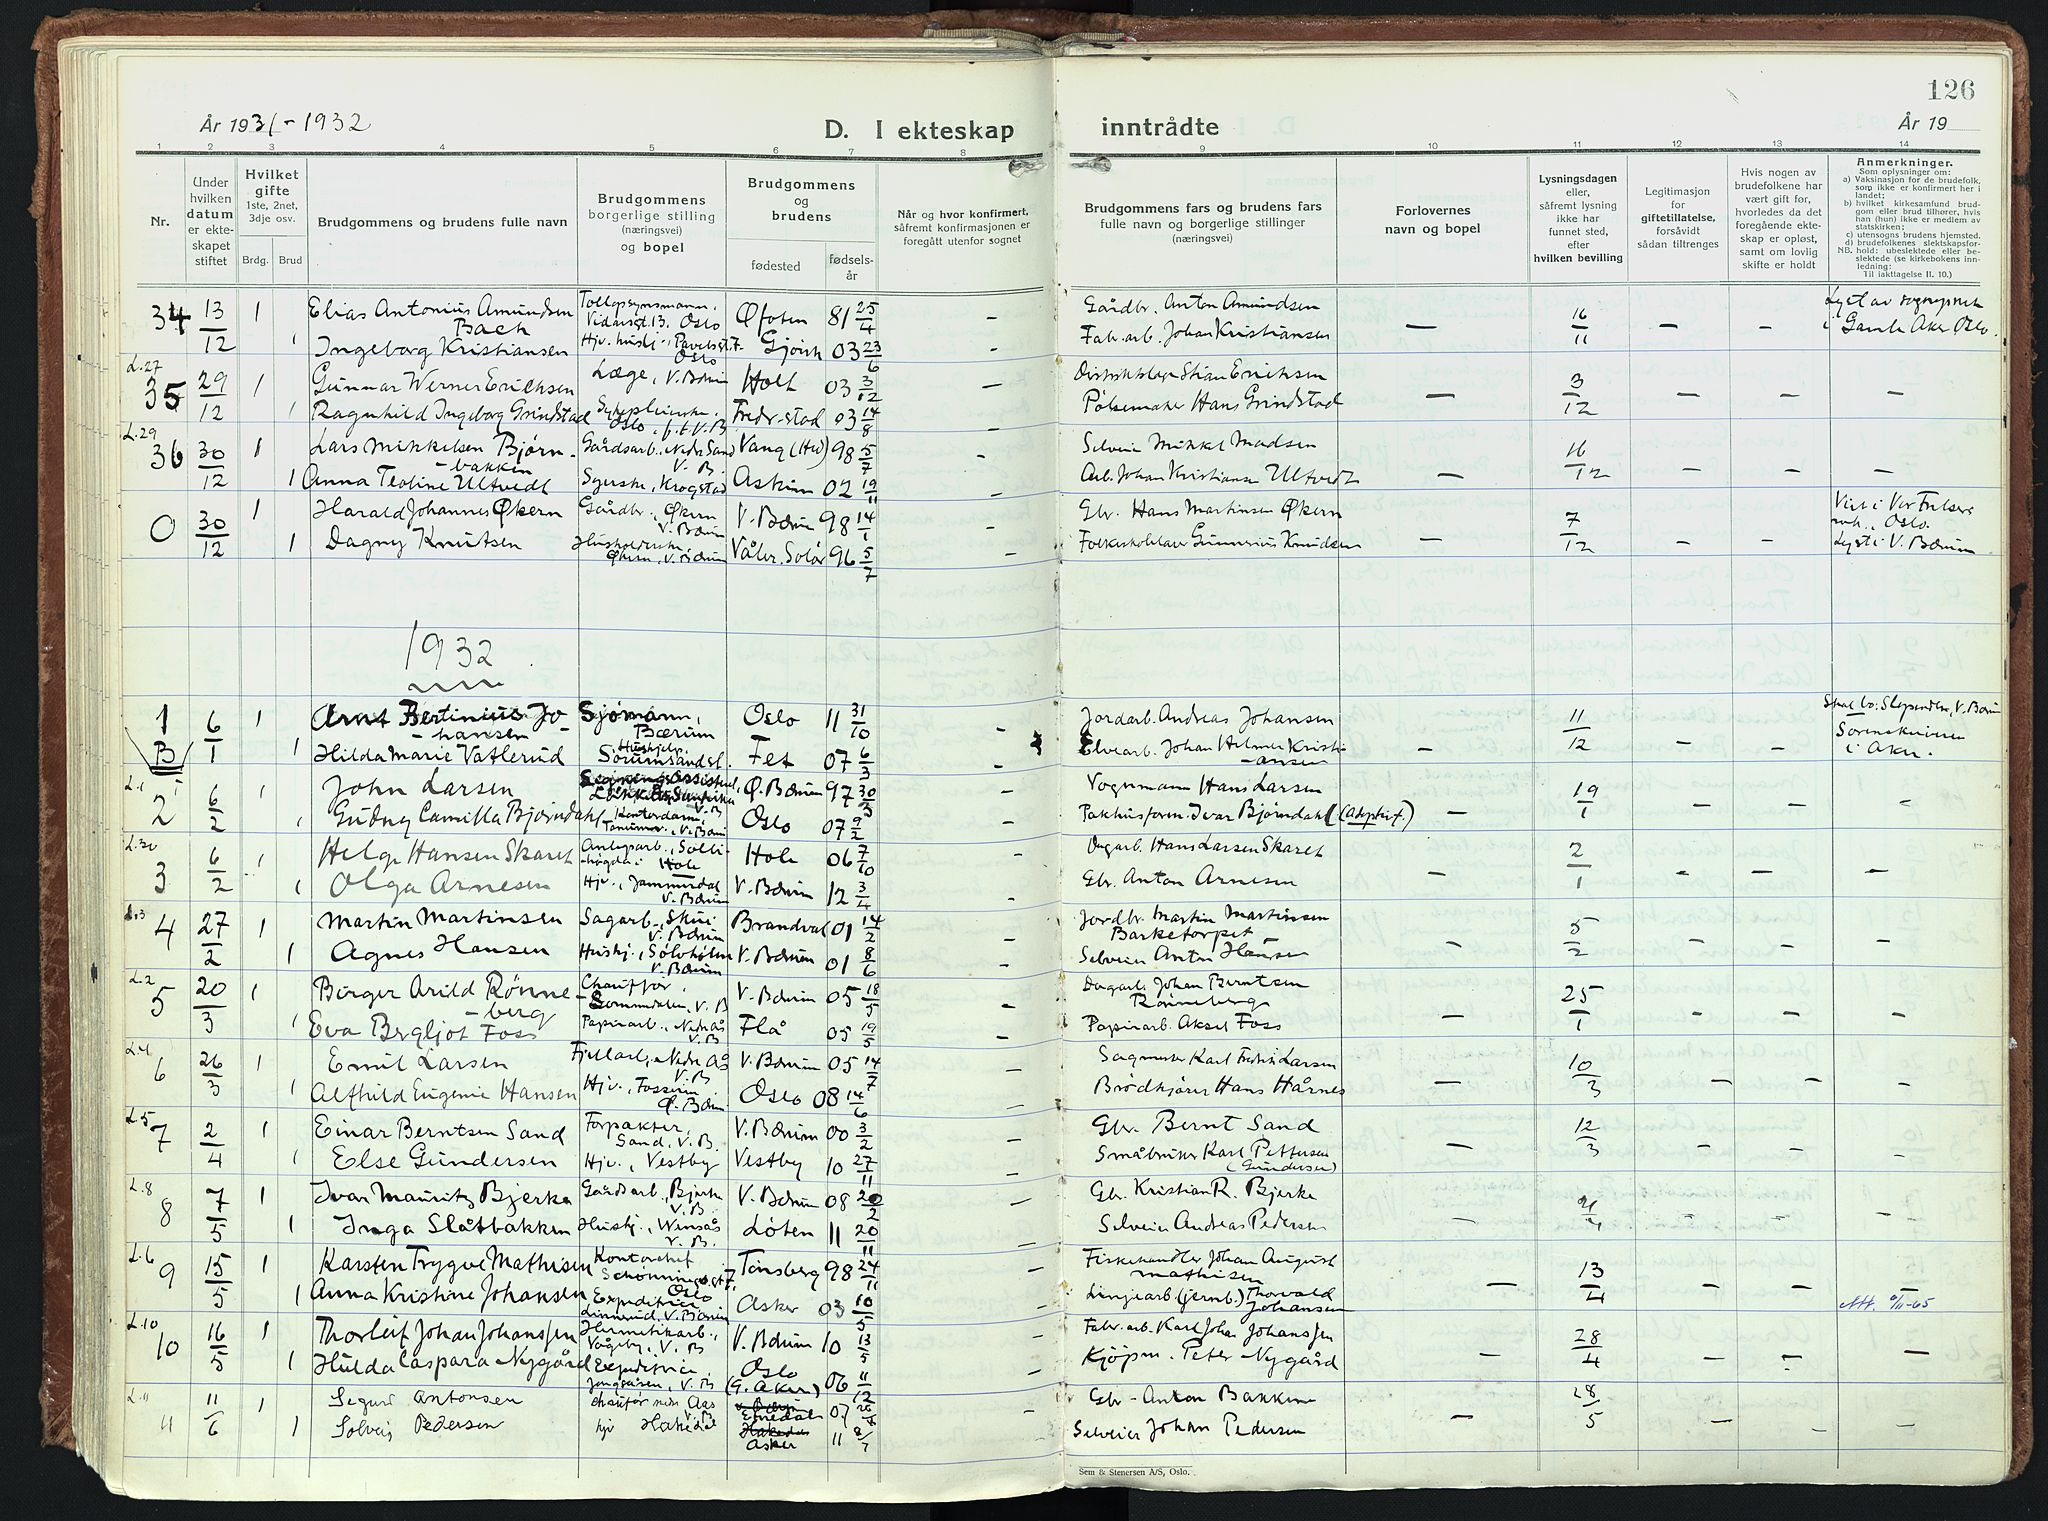 126
År 1931-1932
D. I ekteskap
inntrådte
År 19
1 2 3 4 5 6 7 8 9 10 11 12 13 14
Nr.
Under
hvilken
datum
er ekte-
skapet
stiftet
Hvilket
gifte
1ste, 2net,
3dje osv.
Brdg. Brud
Brudgommens og brudens fulle navn
Brudgommens
borgerlige stilling
(næringsvei)
og bopel
Brudgommens
og
brudens
fødested
fødsels-
år
Når og hvor konfirmert,
såfremt konfirmasjonen er
foregått utenfor sognet
Brudgommens fars og brudens fars
fulle navn og borgerlige stillinger
(næringsvei)
Forlovernes
navn og bopel
Lysningsdagen
eller,
såfremt lysning
ikke har
funnet sted,
efter
hvilken bevilling
Legitimasjon
for
giftetillatelse,
forsåvidt
sådan tiltrenges
Hvis nogen av
brudefolkene har
vært gift før,
hvorledes da det
foregående ekte-
skap er opløst,
samt om lovlig
skifte er holdt
Anmerkninger.
Som oplysninger om:
a) Vaksinasjon for de brudefolk,
som ikke er konfirmert her i
landet;
b) hvilket kirkesamfund brud-
gom eller brud tilhører, hvis
han (hun) ikke er medlem av
statskirken;
c) utensogns brudens hjemsted.
d) brudefolkenes slektskapsfor-
NB. hold: ubeslektede eller be-
slektede (se kirkebokens inn-
ledning:
Til iakttagelse II. 10.)
34 13/12 1 Elias Antonius Amundsen Tollopsynsmann, Øfoten 81 25/4 - Gårdbr. Anton Amundsen — 16/11 — — Lyst av sogneprest
Bach Vidarsgt. 13. Oslo
1 Ingeborg Kristiansen Hjv. Pavelsgt. 7 Oslo Gjøvik 03 23/6 - Fabr.arb. Johan Kristiansen i Gamle Aker Oslo.
L.27
35 29/12 1 Gunnar Werner Erichsen Læge, V. Bærum Holt 03 3/12 — Distriktslæge Erichsen — 3/12 — — —
1 Ragnhild Ingeborg Grindstad Sykepleierske, Oslo, f.t. V.B. Fredr.stad 03 14/8 - Pølsemaker Hans Grindstad
L.29
36 30/12 1 Lars Mikkelsen Bjørn- Gårdsarb., Nedre Sand V.B. Vang (Hed) 98 5/7 - Selveier Mikkel Madsen — 16/12 — — —
bakken
1 Anna Teoline Ultvedt Syerske, Krogstad Askim 02 19/11 - Arb. Johan Kristiansen Ultvedt
0 30/12 1 Harald Johannes Økern Gårdbr., Økern V. Bærum V. Bærum 98 14/1 - Gbr. Hans Martinsen Økern — 7/12 — — Viet i Vor Frelsers
1 Dagny Knutsen Husholderske, Økern, V. Bærum Våler, Solør 96 5/7 - Folkeskolelærer Gunnerius Knudsen Oslo.
Lyst i V. Bærum
1932
1 B 6/1 1 Arnt Bertinius Jo- Sjømann, Bærum Oslo 11 31/10 - Jordarb. Andreas Johansen — 11/12 — — Skal bo: Slependen, V. Bærum
hansen
1 Hilda Marie Vatlerud Hushjelp. Sørumsand st. Fet 07 6/3 - Elvearb. Johan Helmer Kristi- Sorenskriveren
ansen i Aker.
L.1
2 6/2 1 John Larsen Ø. Bærum 97 30/3 Vognmann Hans Larsen — 19/1 — — —
1 Gudny Camilla Bjørndahl Kontordame, Tanum, V. Bærum Oslo 07 9/2 Pakhusform. Ivar Bjørndahl (Adoptivf.)
L.30
3 6/2 1 Helge Hansen Skaret Anlegsarb., Solli- Hole 06 7/10 Dagarb. Hans Larsen Skaret — 2/1 — — —
høgda i Hole
1 Olga Arnesen Hjv., Jammerdal V. Bærum V. Bærum 12 3/4 - Gbr. Anton Arnesen
L.3
4 27/2 1 Martin Martinsen Sagarb., Skui V. Bærum Brandval 01 14/2 - Jordbr. Martin Martinsen — 5/2 — — —
Barketorpet
1 Agnes Hansen Hushj., Sølvhølen V. Bærum V. Bærum 01 8/6 - Selveier Anton Hansen
L.2
5 20/3 1 Birger Arild Rønne- Chauffør, V. Bærum 05 18/5 - Dagarb. Johan Berntsen — 25/1 — — —
berg V. B Rønneberg
1 Eva Bergljot Foss Papirarb., Nedre Ås V. B Flå 05 19/5 - Papirarb. Aksel Foss
L.4
6 26/3 1 Emil Larsen Nedre Ås V. B V. Bærum 05 14/7 - Sagmester Karl Fredrik Larsen — 10/3 — — —
1 Alfhild Eugenie Hansen Hjv., Fossum Ø. Bærum Oslo 08 14/6 - Brødkjører Hans Hårnes
L.5
7 2/4 1 Einar Berntsen Sand Forpakter, Sand, V. B. V. Bærum 00 3/2 - Gbr. Bernt Sand — 12/3 — — —
1 Else Gundersen Hjv., Vestby Vestby 10 27/11 - Småbruker Karl Pettersen
(Gundersen)
L.8
8 7/5 1 Ivar Mauritz Bjerke Gårdsarb., Bjerke V. B. V. Bærum 08 20/2 - Gbr. Kristian R. Bjerke — — —
1 Inga Slåtbakken Hushj., V. B. Løten 11 20/11 - Selveier Andreas Pedersen
L.6
9 15/5 1 Karsten Trygve Mathisen Kontorchef Schønningsgt 7, Oslo Tønsberg 98 24/11 - Fiskehandler Johan August — 13/4 — —
Mathisen
1 Anna Kristine Johansen Expeditrice V. Bærum Asker 03 10/5 - Linjearb. (jernb.) Thorvald
Johansen
L.10
10 16/5 1 Thorleif Johan Johanssen Hermetikarb., Vågeby, V. B V. Bærum 10 13/5 - Fabr.arb. Karl Johan Johanssen — 28/4 — — —
1 Hulda Caspara Nygård Expeditrice V. B Oslo (G. Aker) 06 11/12 - Kjøpm. Peter Nygård
L.11
11 11/6 1 Sigurd Antonsen chaufør nedre Aas V. B 07 Gbr. Anton Bakken — 28/5 — —
1 Solveig Pedersen hjv Hakedal Asker 11 8/7 Selveier Johan Pedersen
Sem & Stenersen A/S, Oslo.